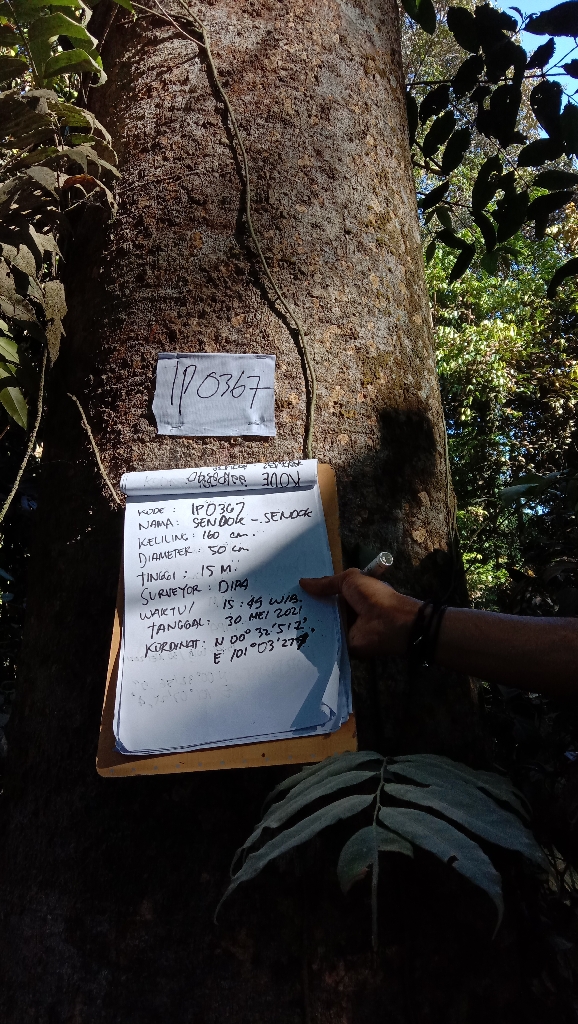 IP0367
KODE : IP0367
NAMA : SENDOK - SENDOK
KELILING : 160 cm
DIAMETER : 50 cm
TINGGI : 15 M
SURVEYOR : DIPA
WAKTU/ 15:49 WIB
TANGGAL : 30 MEI 2021
KORDINAT : N 00° 32' 512"
E 101° 03' 275"